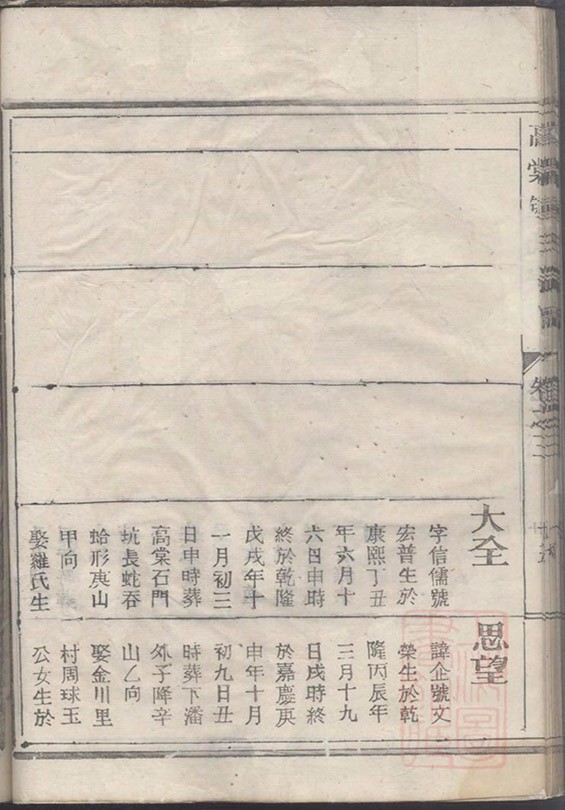 大全
字信儒號
宏普生於
康熙丁丑
年六月十
六日申時
終於乾隆
戊戌年十
一月初三
日申時葬
高棠石門
坑長蛇吞
蛤形庚山
甲向
娶羅氏生
思望
諱企號文
榮生於乾
隆丙辰年
三月十九
日戌時終
於嘉慶庚
申年十月
初九日丑
時葬下潘
外子降辛
山乙向
娶金川里
村周球玉
公女生於